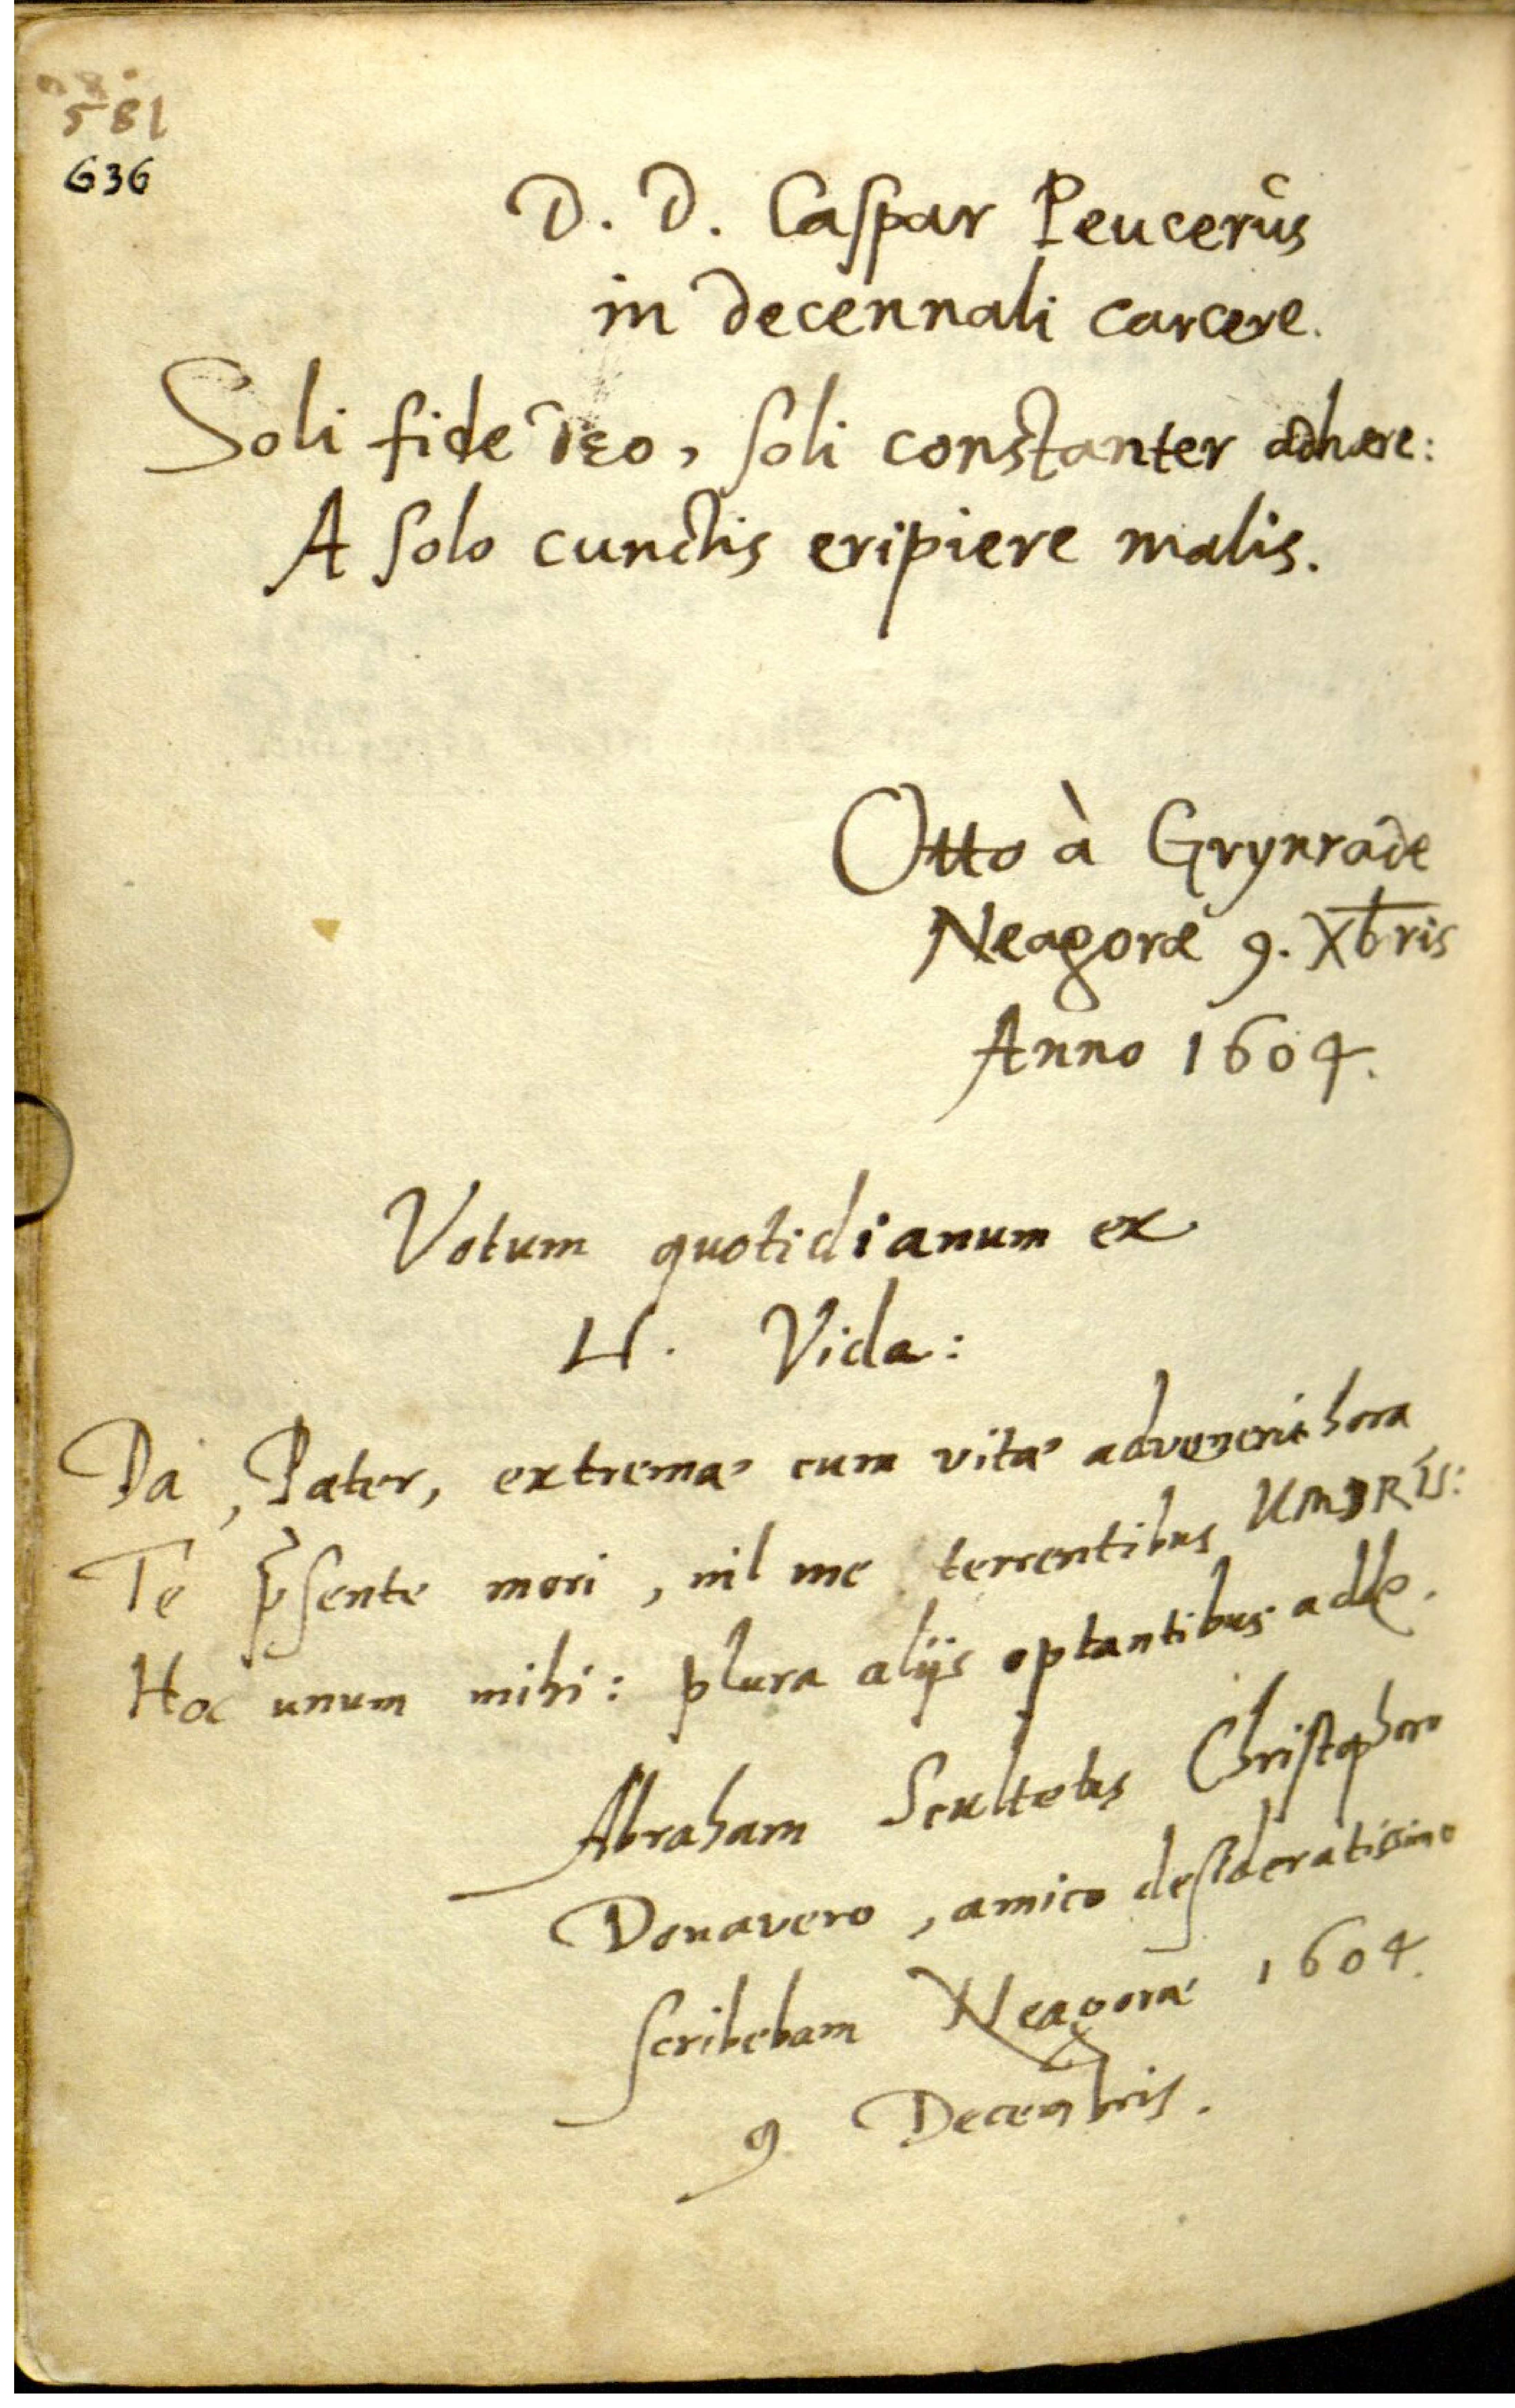 581
636
D. D. Caſpar Peucerus
in decennali carcere.
Soli fide Deo, ſoli constanter adhære:
A ſolo cunctis eripiere malis.
Otto à Grynrade
Neagoræ 9. Xbris
Anno 1604.
Votum quotidianum ex
Vida:
Da, Pater, extrema cum vitæ advenerit hora
Te pſente mori, nil me terrentibus UMBRIS:
Hoc unum mihi: plura alijs optantibus adde.
Abraham Scultetus Chriſtophoro
Donavero, amico deſideratissimo
ſcribebam Neagoræ 1604.
9 Decembris.